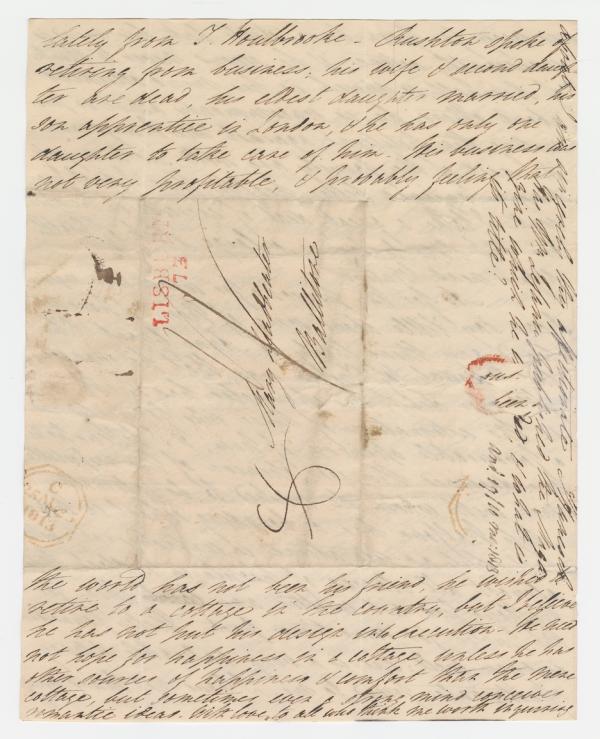 lately from T. Houlbrooke – Rushton spoke of
retiring from business, his wife & second daugh
ter are dead, his eldest daughter married, his
son apprentice in London, & he has only one
daughter to take care of him. His business was
not very profitable, & probably feeling that
the world has not been his friend, he wished
retire to a cottage in the country, but I believe
he has not put his design into execution. He need
not hope for happiness in a cottage, unless he has
other sources of happiness & comfort than the mere
cottage, but sometimes even a strong mind conceives
romantic ideas. With love, to all who think me worth inquiring
LISBURN
73
Mary Leadbeater
Ballitore
C
1813
the
which he
to take